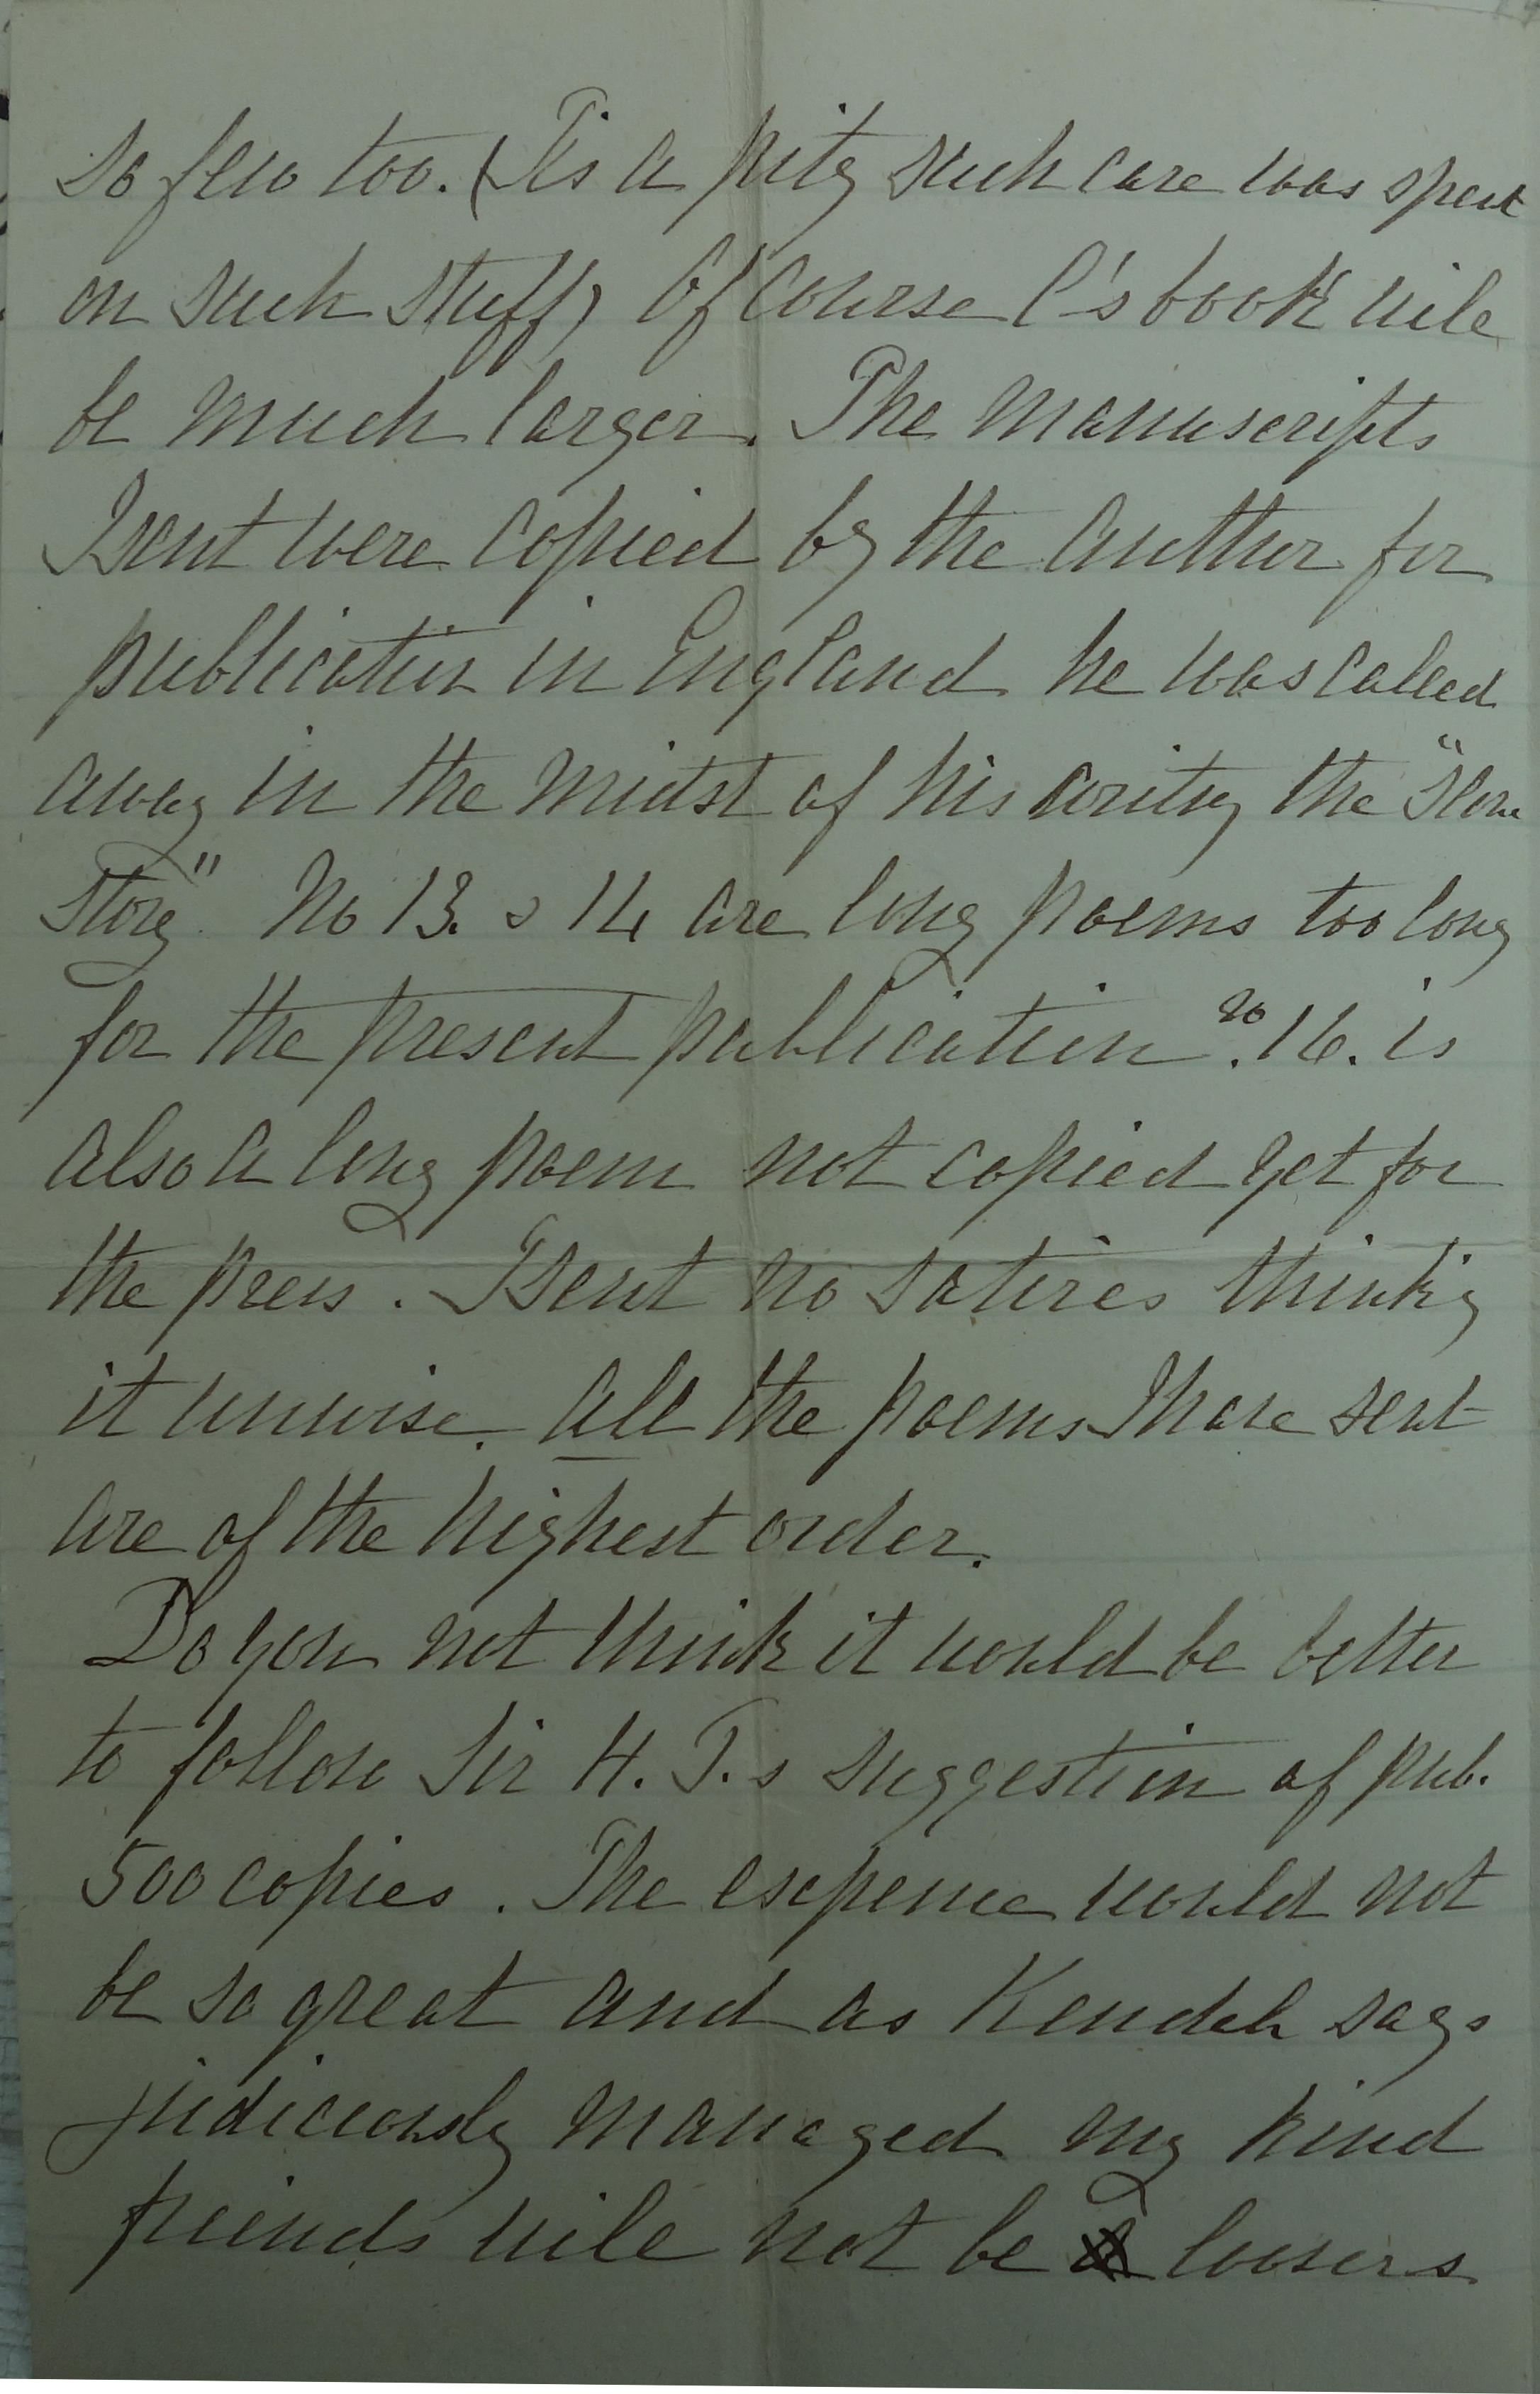 so few too. (Tis a pity such care was spent
on such stuff) Of course C's book will
be much larger. The manuscripts
I sent were copied by the author for
publication in England he was called
away in the midst of his writing the "Slave
Story" No 13. & 14 are long poems too long
for the present publication. No 16. is
also a long poem not copied yet for
the press. I sent no satires thinking
it unwise. All the poems I have sent
are of the highest order.
Do you not think it would be better
to follow Sir H. T.s suggestion of pub.
500 copies. The expense would not
be so great and as Kendall says
judiciously managed my kind
friends will not be loosers